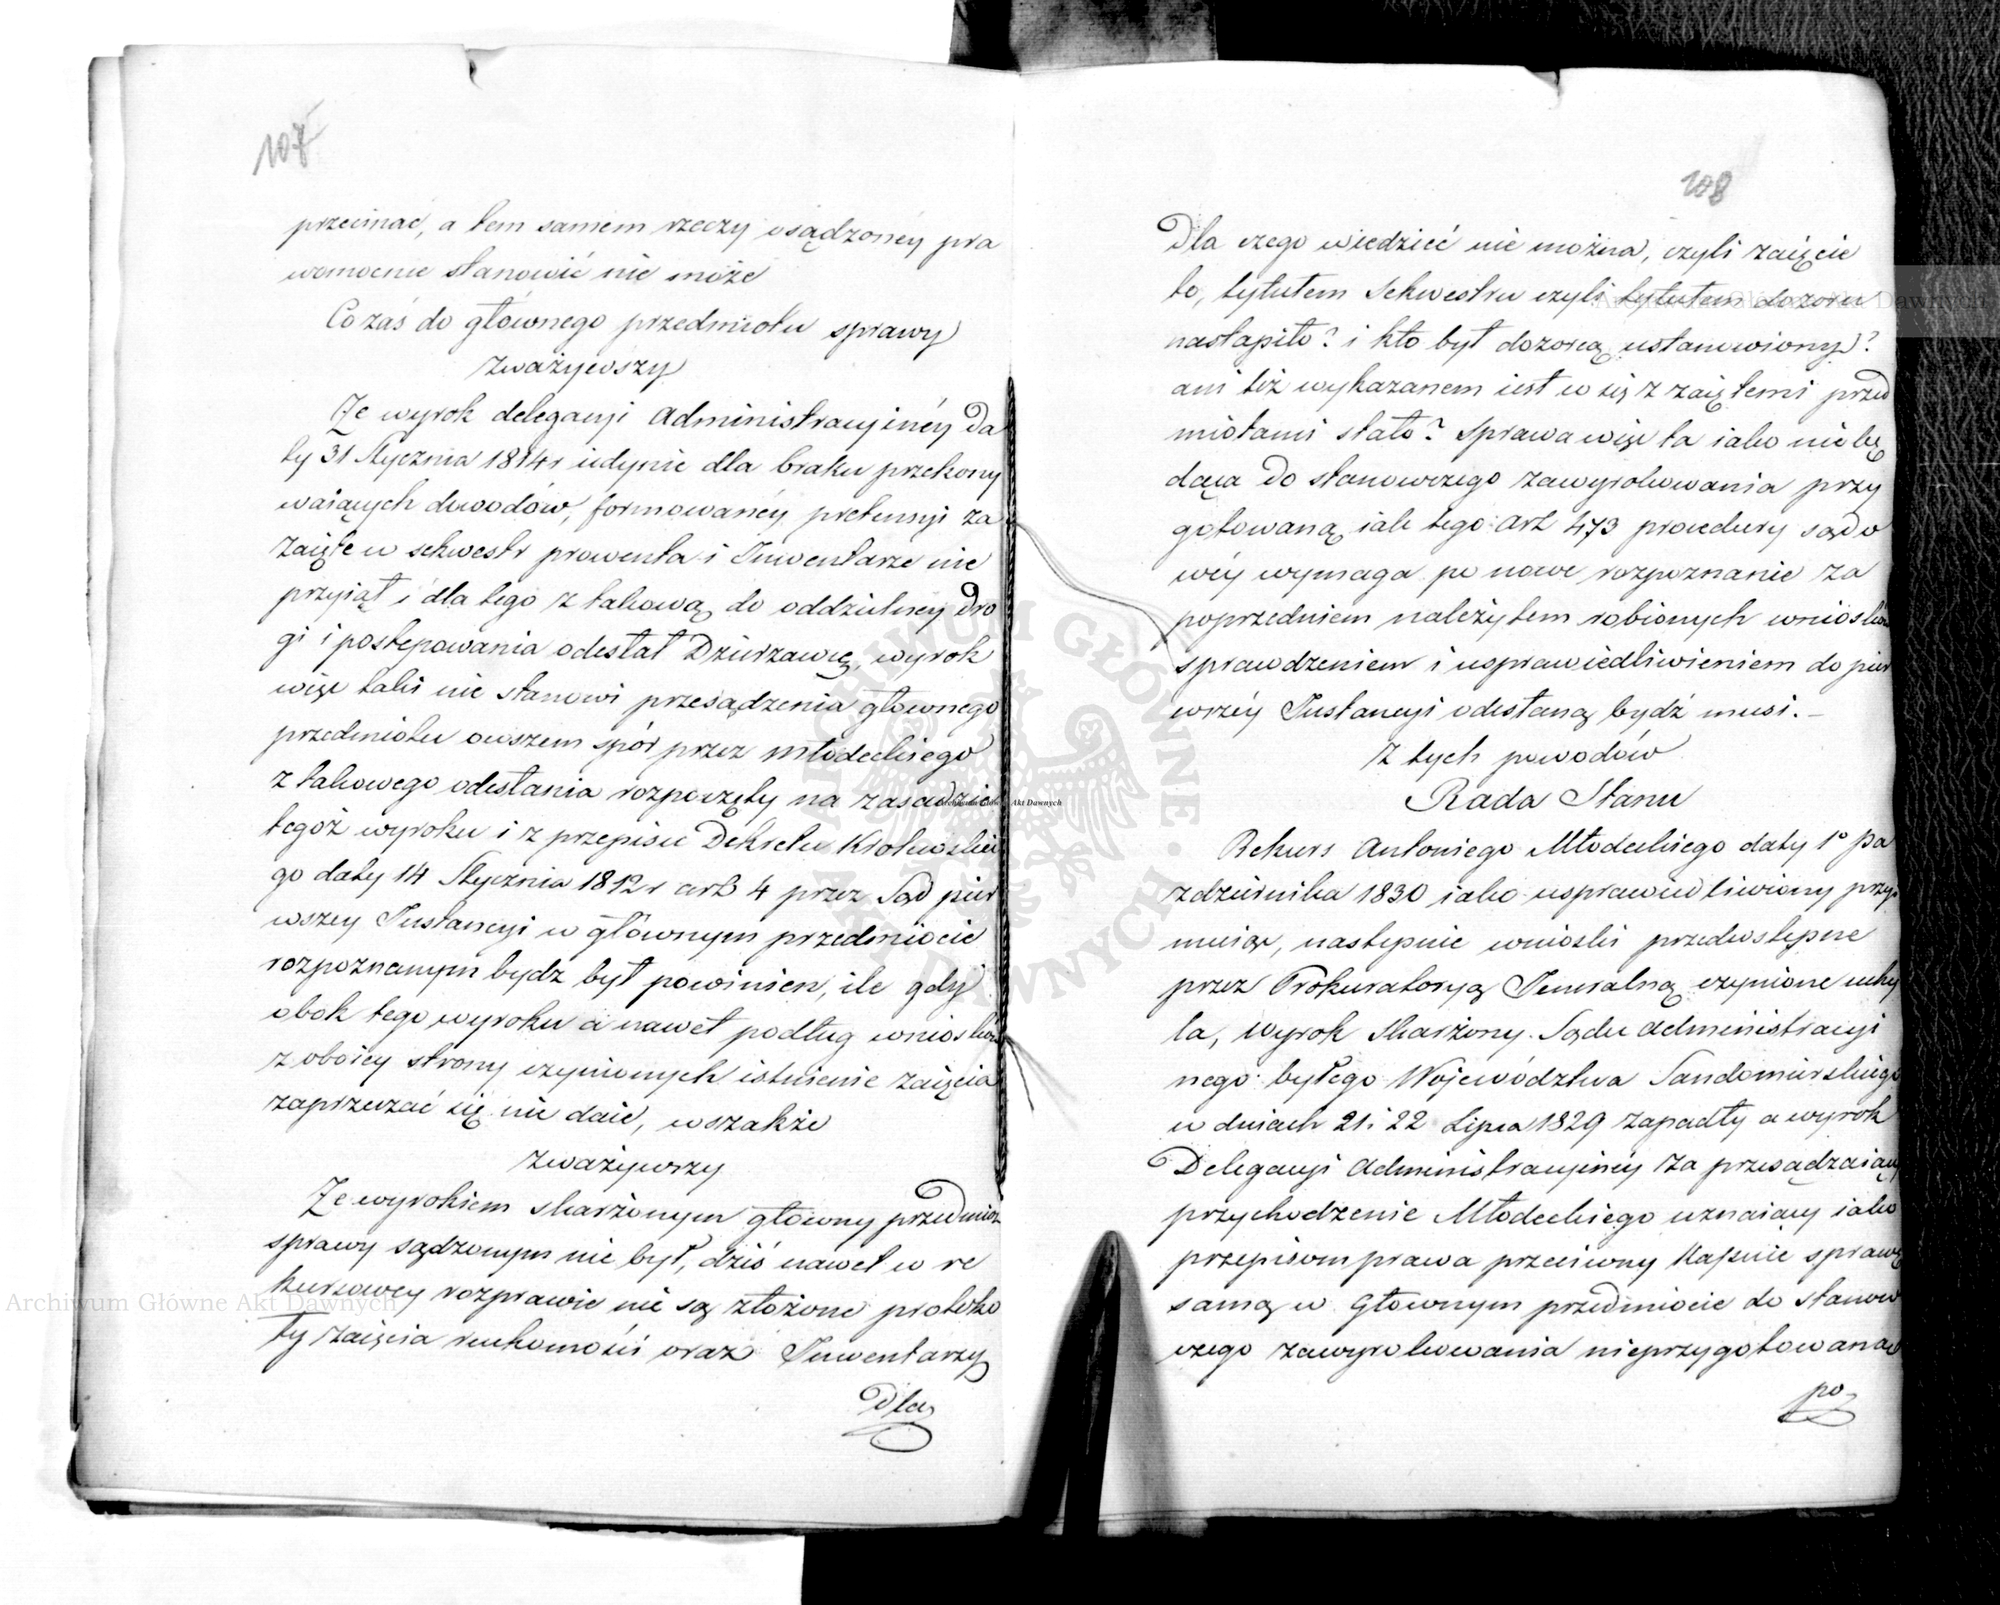 107
przecinać, a tem samem rzeczy osądzonéy pra
womocnie stanowić nie może
Co zaś do głównego przedmiotu sprawy
zważywszy
Że wyrok delegacyi Administracyinéy Da
ty 31 Stycznia 1814 r iedynie dla braku przekony
waiących dowodów, formowanéy pretensyi za
zaięte w sekwestr prowenta i Inwentarze nie
przyiął i dla tego z takową do oddzielney Dro
gi i postępowania odesłał Dzierzawcę, wyrok
więc taki nie stanowi przesądzenia głównego
przedmiotu owszem spór przez Młodeckiego
z takowego odesłania rozpoczęty na zasadzie
tegoż wyroku i z przepisu Dekretu Królewskie
go daty 14 Stycznia 1812 r art 4 przez Sąd pier
wszey Instancyi w głównym przedmiocie
rozpoznanym bydz był powinien, ile gdy
obok tego wyroku a nawet podług wniosków
z oboiey strony czynionych istnienie zaięcia
zaprzeczać się nie daie, wszakże
zważywszy
Że wyrokiem skarżonym główny przedmiot
sprawy sądzonym nie był, dziś nawet w re
kursowey rozprawie nie są złożone protoko
ły zaięcia ruchomości oraz Inwentarzy
Dla
108
Dla czego wiedzieć nie można, czyli zaięcie
to, tytułem Sekwestru czyli tytułem dozoru
nastąpiło? i kto był dozorcą ustanowiony?
ani też wykazanem iest co się z zaiętemi przed
miotami stało? Sprawa więc ta iako nie bę
dąca do stanowczego zawyrokowania przy
gotowaną iak tego art 473 procedury sądo
wéy wymaga po nowe rozpoznanie za
poprzedniem należytem robionych wniosków
sprawdzeniem i usprawiedliwieniem do pier
wszéy Instancyi odesłaną bydź musi. –
Z tych powodów
Rada Stanu
Rekurs Antoniego Młodeckiego daty 1º Pa
zdziernika 1830 iako usprawiedliwiony przy
muiąc, następnie wnioski przedwstępne
przez Prokuratoryą Jeneralną czynione uchy
la, wyrok skarżony Sądu Administracyi
nego byłego Województwa Sandomierskiego
w dniach 21 i 22 Lipca 1829 zapadły a wyrok
Delegacyi Administracyinéy za przesądzaiący
przychodzenie Młodeckiego uznaiący iako
przepisom prawa przeciwny kassuie sprawę
samą w Głównym przedmiocie do stanow
czego zawyrokowania nieprzygotowaną
po
Archiwum Główne Akt Dawnych
Archiwum Główne Akt Dawnych
Archiwum Główne Akt Dawnych
ARCHIWUM GŁÓWNE AKT DAWNYCH